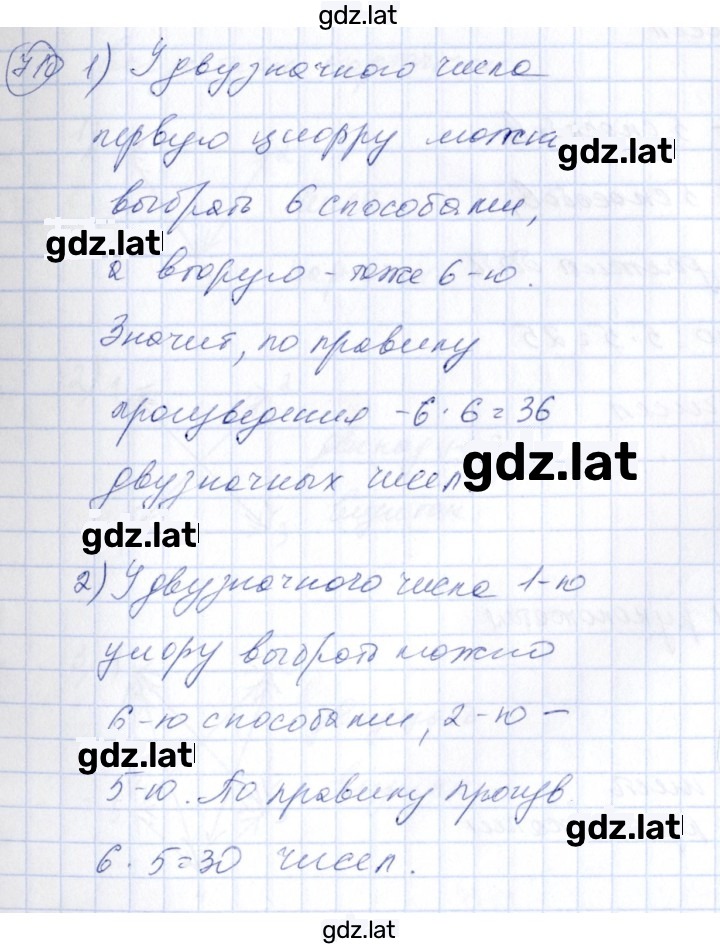 gdz.lat
710 1) У двузначного числа
первую цифру можно
gdz.lat
выбрать 6 способами,
gdz.lat
а вторую - тоже 6-ю.
Значит, по правилу
произведения - 6 · 6 = 36
двузначных чисел
gdz.lat
gdz.lat
2) У двузначного числа 1-ю
цифру выбрать можно
6-ю способами, 2-ю -
gdz.lat
5-ю. По правилу произв.
gdz.lat
6 · 5 = 30 чисел.
gdz.lat